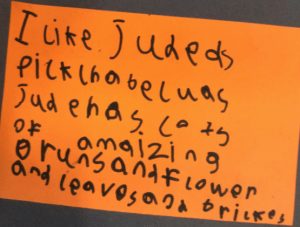 I like Judeds
Picklhabeluas
Judehas Lots
of amaizing
orunsandflower
and leavesand brickes